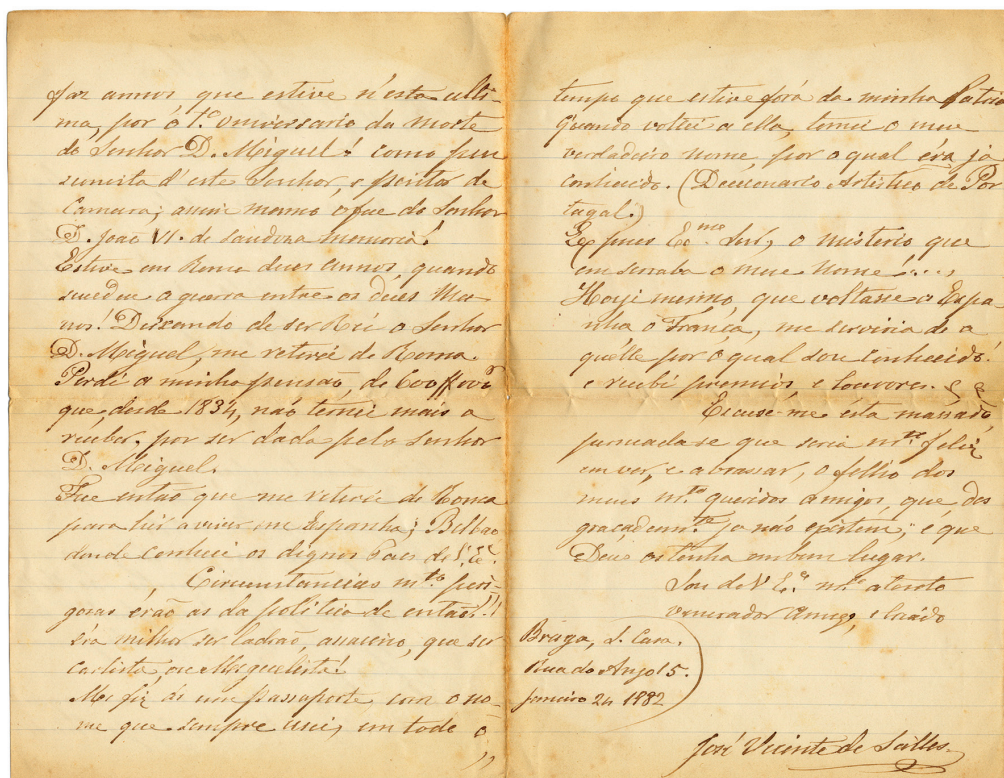 faz annos que estive n'esta ulti-
ma, por ó 1.º universario da morte
do Senhor D. Miguel! como pen
sunista d'este Senhor, e pintor de
Camara; assim mesmo o fue do Senhor
D. João VI. de saudoza memoria!
Estive em Roma dues annos, quando
sucedue a guerra entre os dues Ma-
nos! Deixando de ser Réi o Senhor
D. Miguel, me retiréi de Roma.
Perdi a minha pensaõ, de
que, desde 1834, naõ tornei mais a
riciber, por ser dada pelo Senhor
D. Miguel.
Fue entaõ que me retiréi de Roma
para hir a viver, em Espanha; Bilbao
donde conheci os dignos Paes de V. Ex.ª
Circunstancias m.to peri-
gozas éraõ as da politica de entaõ!!!
éra milhor ser ladraõ, assacino, que ser
Carlista, ou Miguelista!
Me fiz de um passaporte, com o no-
me que sempre uzei, em todo ó
tempo que estive fóra da minha Patria
Quando voltei a ella, tomei o meu
verdadeiro nome, por o qual éra ja
conhecido. (Deccionario Artistico de Por
tugal.)
Ex.mo Snr, o misterio que
em serraba o meu nome!....
Hoyi mesmo que voltasse a Espa
nha ó França, me serviria de a
quélle por ó qual sou conhecido!
e recibi premios e louvores.
Escuse-me ésta massada,
persuada-se que seria m.to feliz
em ver, e abrassar, o filho dos
meus m.to queridos amigos, que des
graçadem.te ja naõ existem; e que
Deus os tenha em bom lugar.
Sou de V. Ex.ª m.to atento
venerador Amigo, e criádo
Braga, S. Casa.
Rua do Anjo 15.
Janeiro 24 1882
José Vicente de Salles